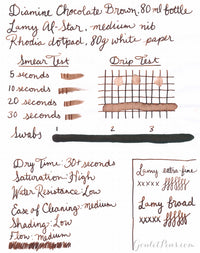 Diamine Chocolate Brown, 80 ml bottle
Lamy Al-Star, medium nib
Rhodia dotpad, 80g white paper
Smear Test
Drip Test
5 seconds
10 seconds
20 seconds
30 seconds
Swabs 1 2 3
Dry Time: 30+ seconds
Saturation: High
Water Resistance: Low
Ease of Cleaning: medium
Shading: Low
Flow: medium
Lamy extra-fine
xxxxx
Lamy broad
xxxxx
GouletPens.com